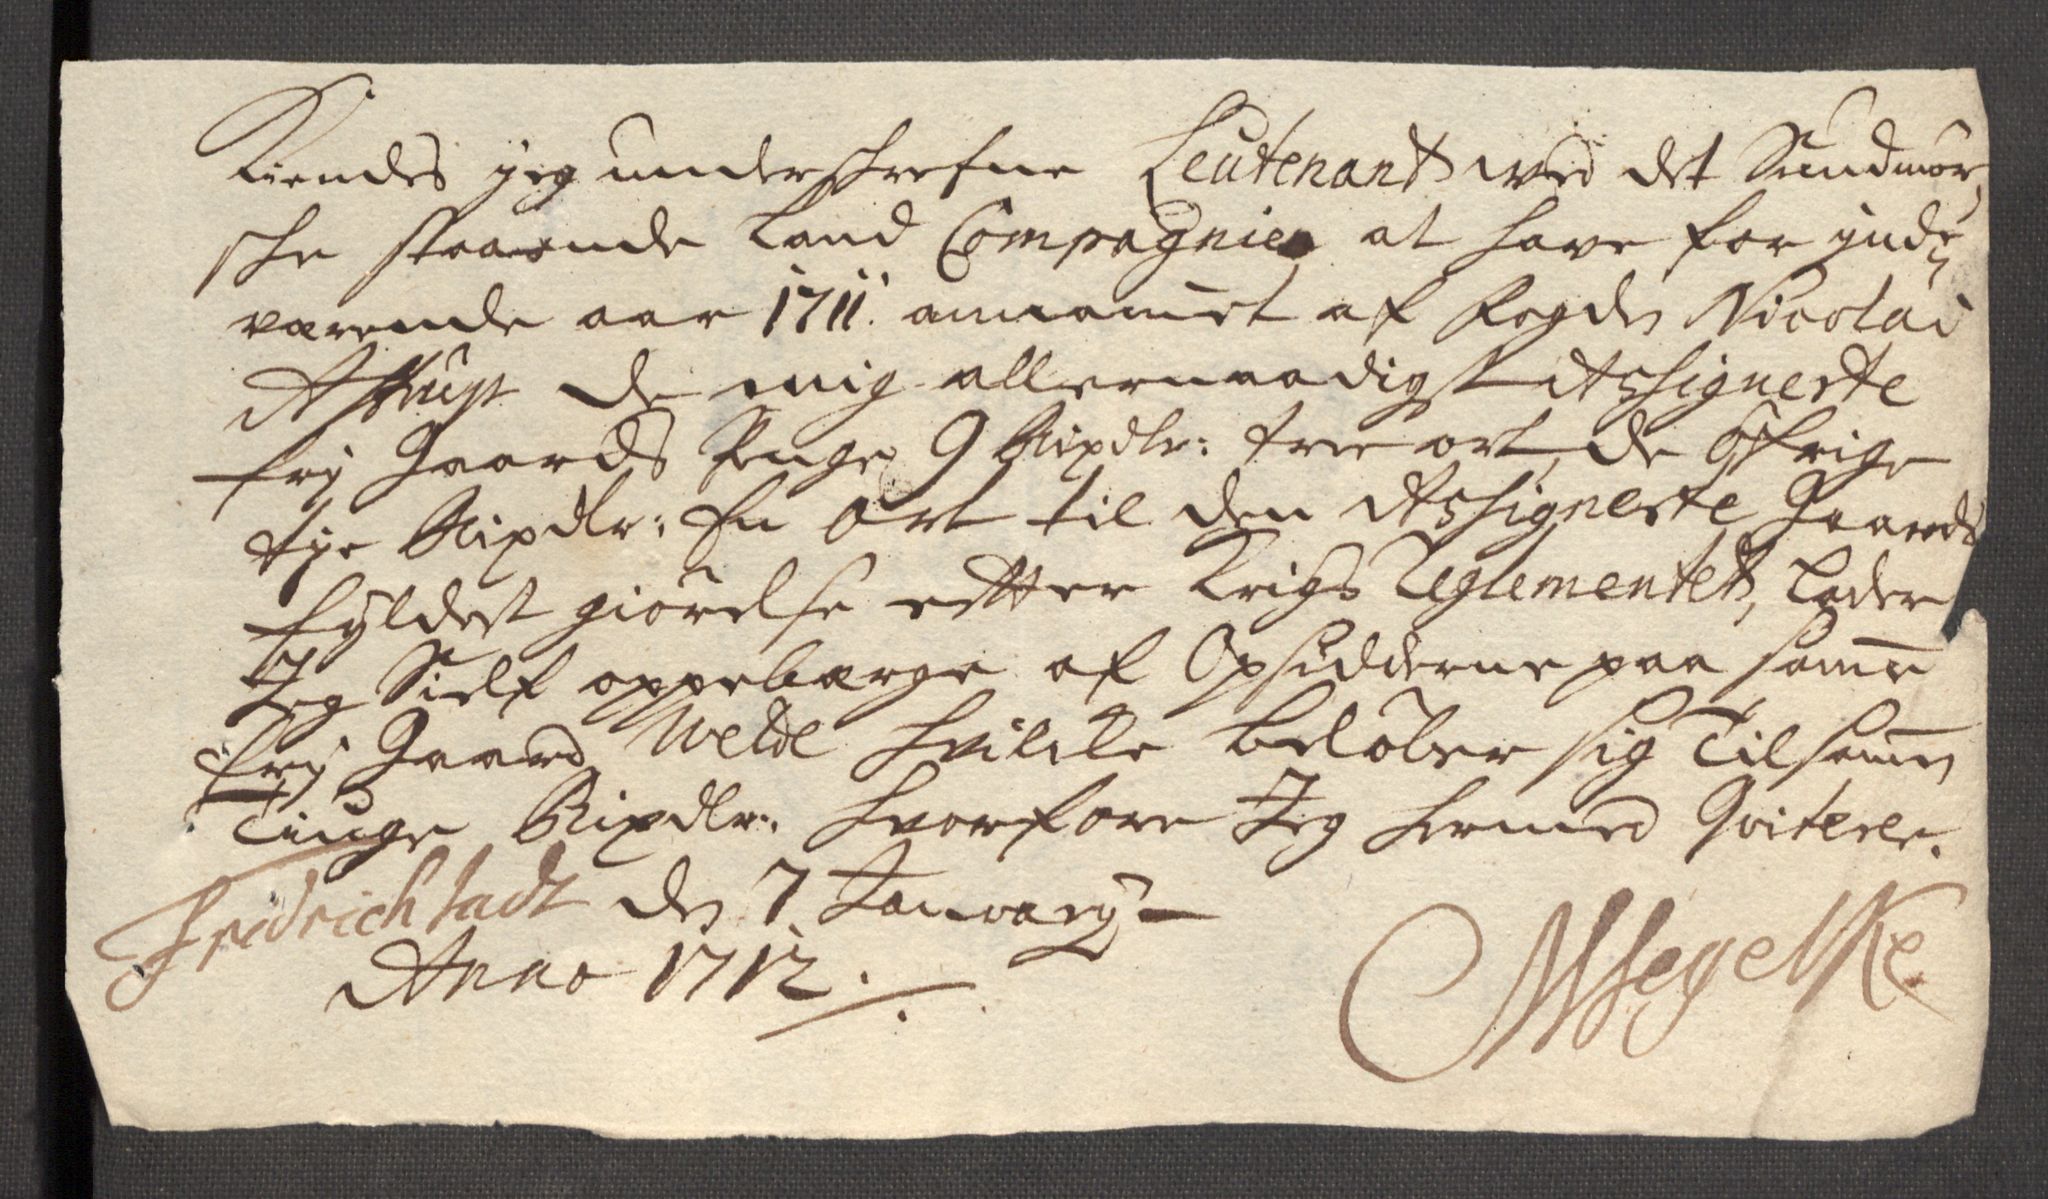 Kiendes jeg underskrefne Leutenant wed det Sundmør,
ske staaende Land Compagnie at have for inde,,
værende aar 1711. annammet af Fogden Nicolai
Astrup de mig allernaadigst Assignerte
frj Gaards Penge 9 Rixdlr: tree ort, de Øfrige
tije Rixdlr: En Ort til den Assignerte Gaards
fyldest giørelse efter Krigs Reglementet, lader
Jeg Sielf oppebærge af Opsidderne paa samme
frj Gaard Welde hvilcke beløber sig Tilsamen
Tiuge Rixdlr: hvorfore Jeg hermed Qvitere.
Fridrichstadt den 7 Januarij
Anno 1712.
MSegelKe